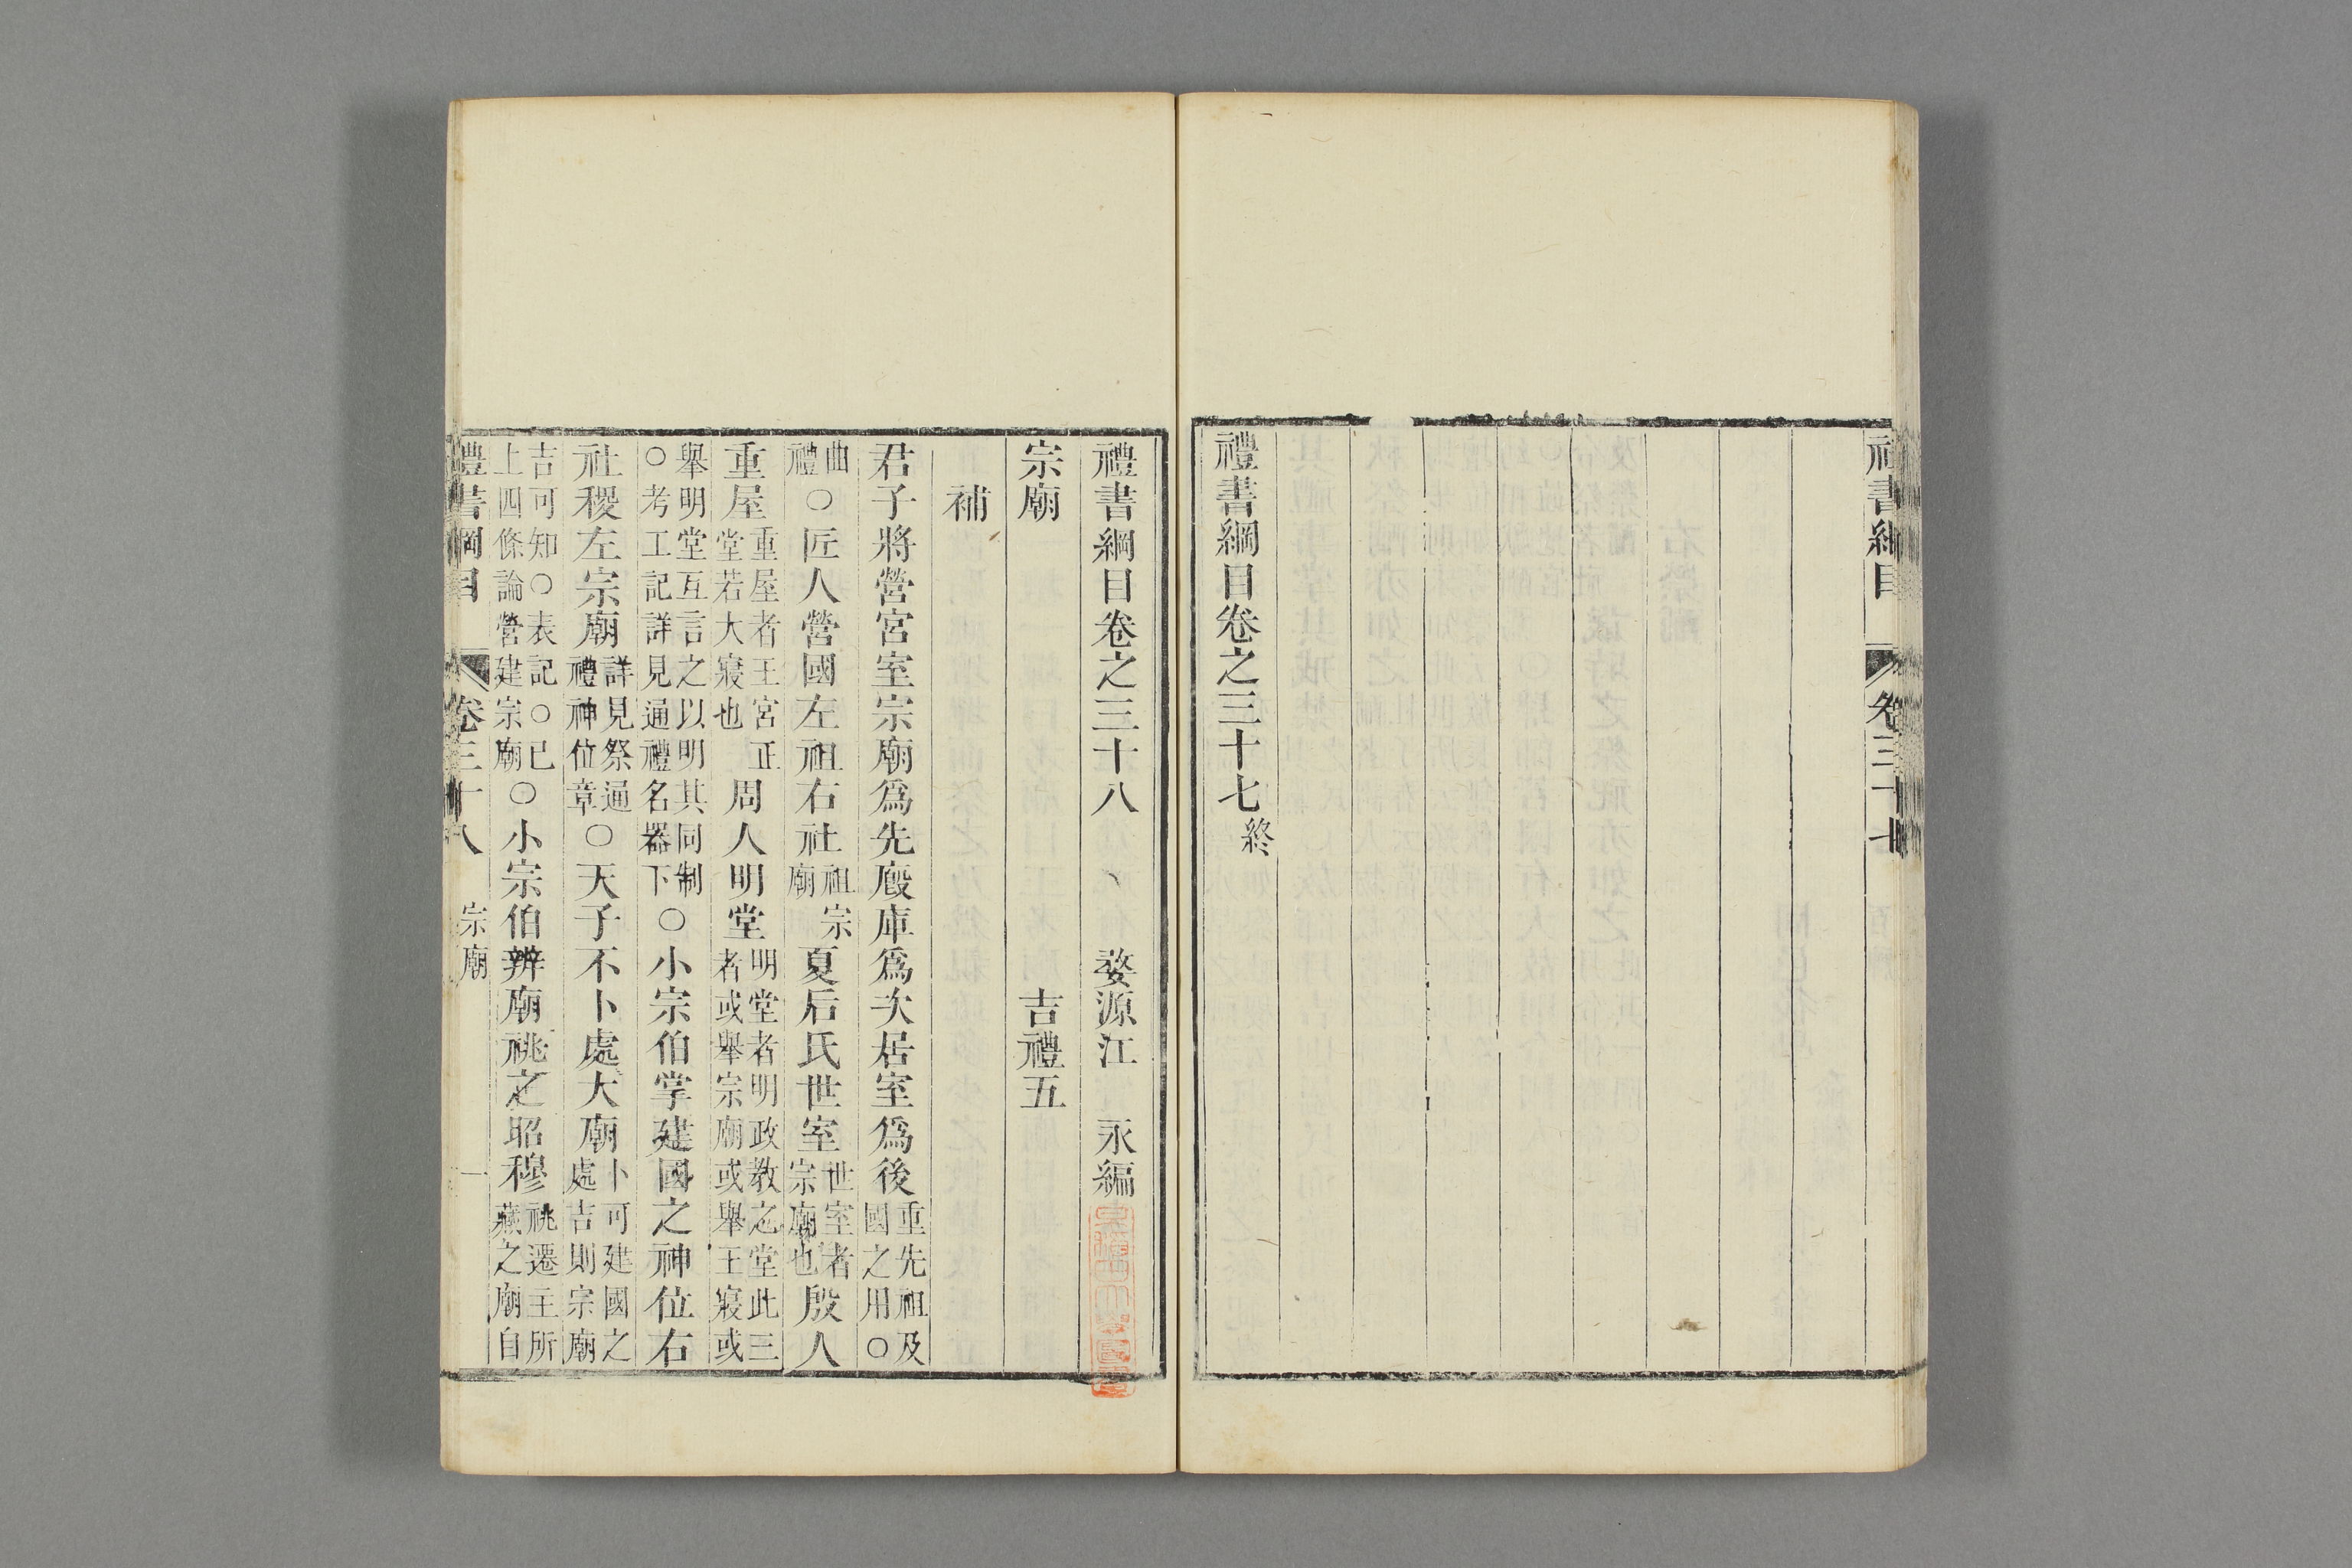 禮書綱目 卷三十七
禮書綱目卷之三十七終
禮書綱目卷之三十八 婺源江 永編
宗廟 吉禮五
補
君子將營宮室宗廟爲先廏庫爲次居室爲後重先祖及國之用○
曲禮○匠人營國左祖右社祖宗廟夏后氏世室世室者宗廟也殷人
重屋重屋者王宮正堂若大寢也周人明堂明堂者明政教之堂此三者或舉宗廟或舉王寢或
舉明堂互言之以明其同制○考工記詳見通禮名器下○小宗伯掌建國之神位右
社稷左宗廟詳見祭通禮神位章○天子不卜處大廟卜可建國之處吉則宗廟
吉可知○表記○已上四條論營建宗廟○小宗伯辨廟祧之昭穆祧遷主所藏之廟自
禮書綱目 卷三十八 宗廟 一